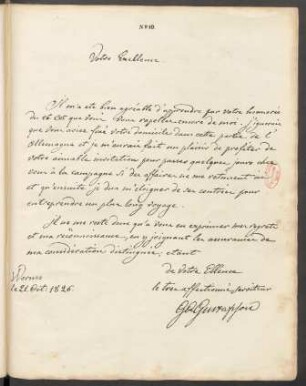 Votre Excellence
Il m'a été bien agréable d'apprendre par votre honnorée
du 16 Oct que vous vous rappellez encore de moi. J'ignorais
que vous aviez fixé votre domicile dans cette partie de l'
Allemagne et je m'aurais fait un plaisir de profiter de
votre aimable invitation pour passer quelques jours chez
vous à la campagne si des affaires ne me retenaient
et qu'ensuite je dois m'éloigner de ces contrées pour
entreprendre un plus long voyage.
Il ne me reste donc qu'à vous en exprimer mes regrets
et ma reconnaissance, en y joignant les assurances de
ma considération distinguée, etant
de Votre Exllence
le 21 Oct. 1826.
le tres affectionné serviteur